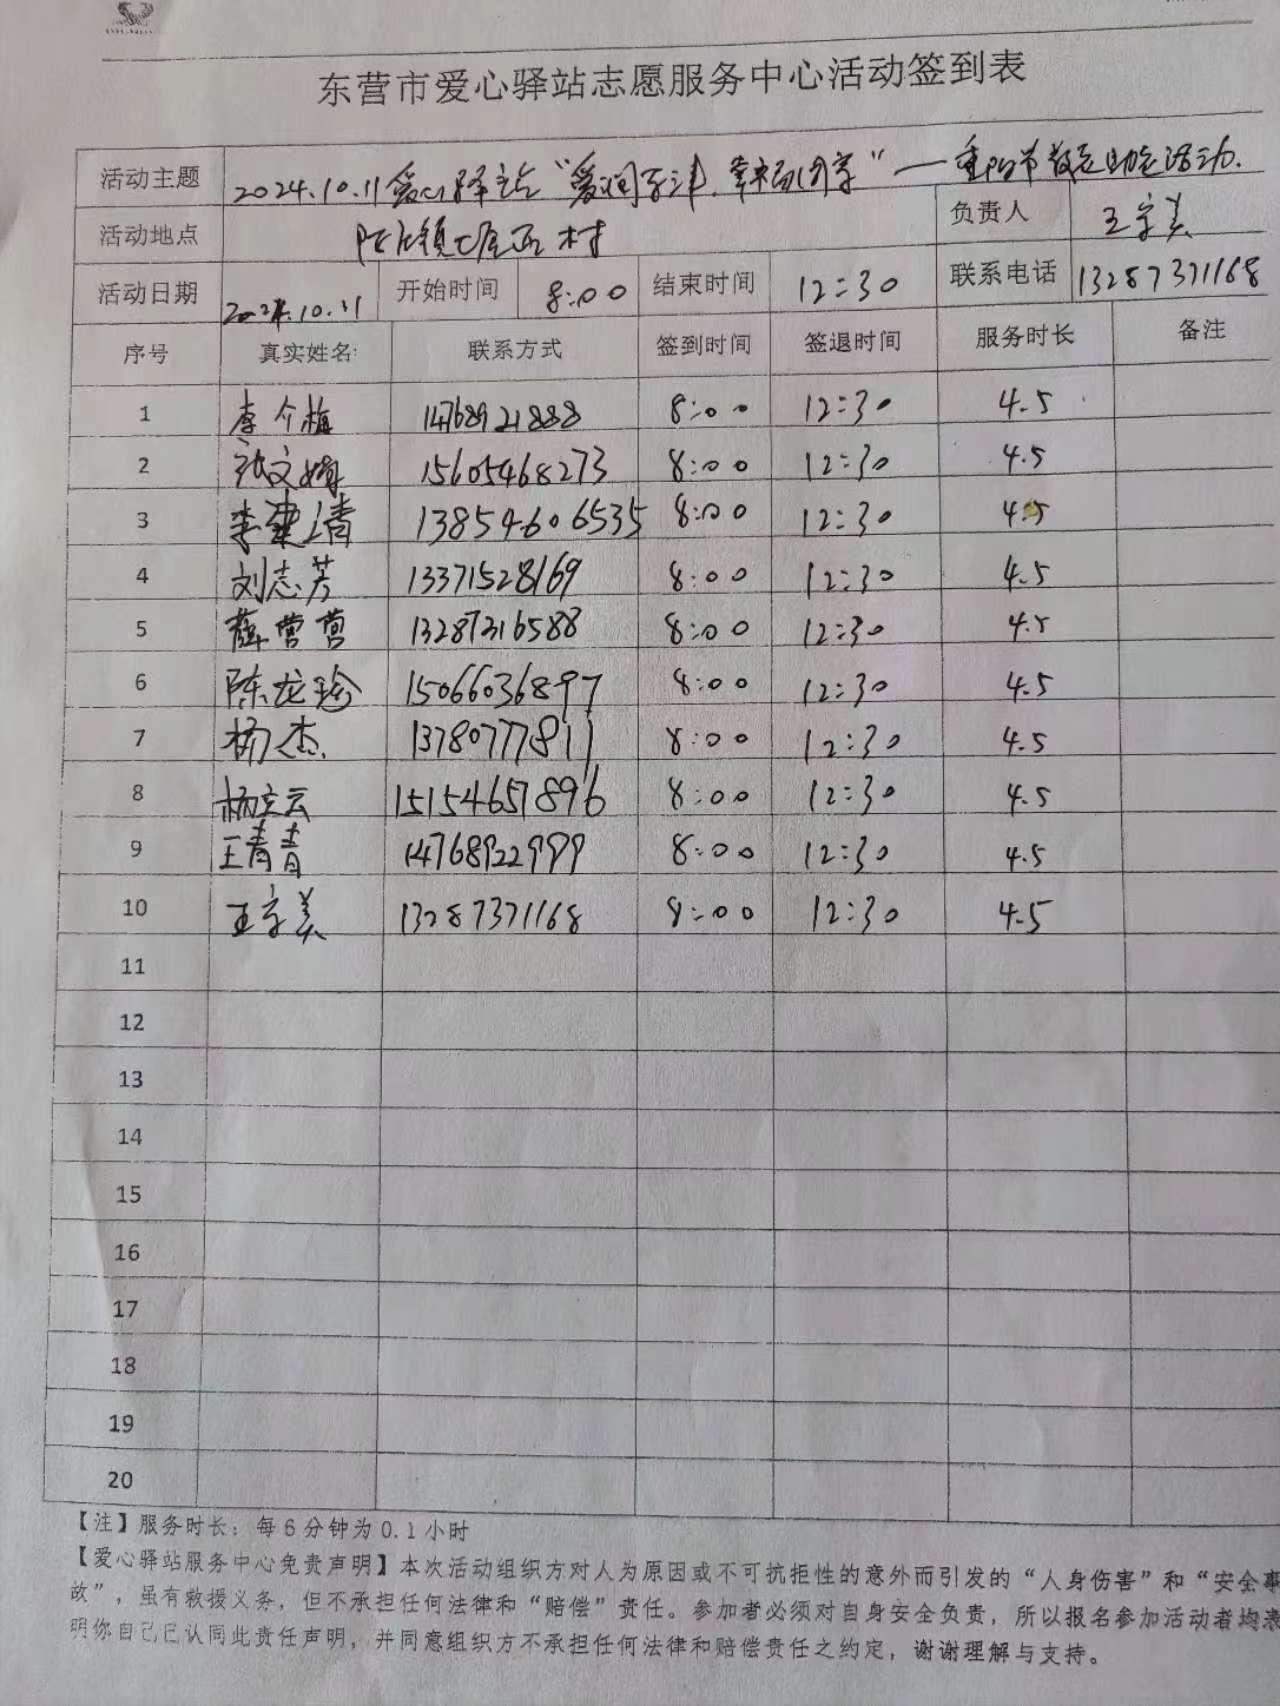 东营市爱心驿站志愿服务中心活动签到表
活动主题 2024.10.11爱心驿站“爱润万津.幸福同享”—重阳节敬老助老活动.
活动地点 陈庄镇七屋西村 负责人 王字美
活动日期 2024.10.11 开始时间 8:00 结束时间 12:30 联系电话 13287371168
序号 真实姓名 联系方式 签到时间 签退时间 服务时长 备注
1 李介梅 14768921888 8:00 12:30 4.5
2 张文娟 15605468273 8:00 12:30 4.5
3 李建清 13854606535 8:00 12:30 4.5
4 刘志芳 13371528169 8:00 12:30 4.5
5 薛营营 13287316588 8:00 12:30 4.5
6 陈龙珍 15066036897 8:00 12:30 4.5
7 杨杰 13780777811 8:00 12:30 4.5
8 杨立云 15154657896 8:00 12:30 4.5
9 王青青 14768922999 8:00 12:30 4.5
10 王字美 13287371168 8:00 12:30 4.5
11
12
13
14
15
16
17
18
19
20
【注】服务时长：每6分钟为0.1小时
【爱心驿站服务中心免责声明】本次活动组织方对人为原因或不可抗拒性的意外而引发的“人身伤害”和“安全事
故”，虽有救援义务，但不承担任何法律和“赔偿”责任。参加者必须对自身安全负责，所以报名参加活动者均表
明你自己已认同此责任声明，并同意组织方不承担任何法律和赔偿责任之约定，谢谢理解与支持。